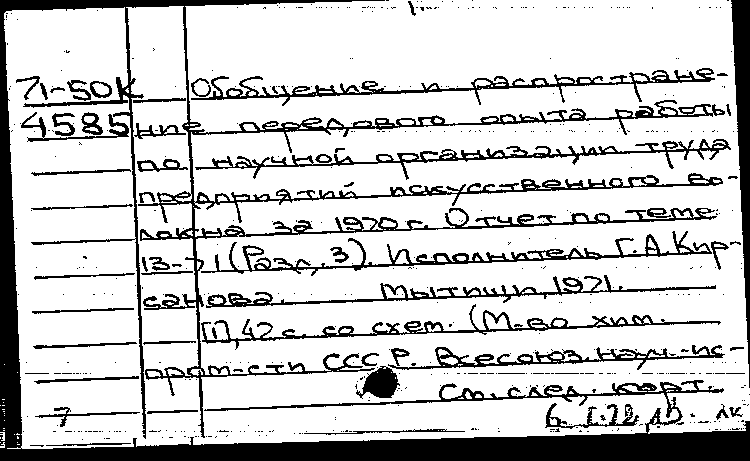 71-50К Обобщение и распростране-
4585 ние передового опыта работы
по научной организации труда
предприятий искусственного во-
локна за 1970 г. Отчет по теме
13-71 (Разд. 3). Исполнитель Г.А. Кир-
санова. Мытищи, 1971.
[1], 42 с. со схем. (М-во хим.
пром-сти СССР. Всесоюз. науч.-ис-
См. след. карт.
7 6. I.72 лк